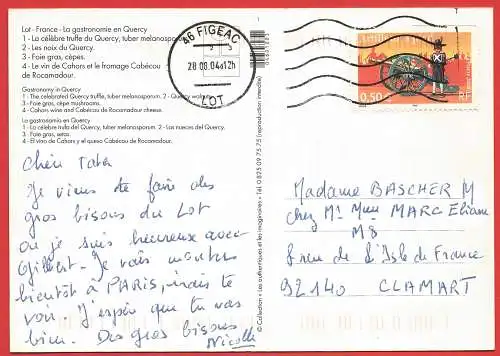 Lot - France - La gastronomie en Quercy
1 - La célèbre truffe du Quercy, tuber melanosporum.
2 - Les noix du Quercy.
3 - Foie gras, cèpes.
4 - Le vin de Cahors et le fromage Cabécou
de Rocamadour.
Gastronomy in Quercy
1 - The celebrated Quercy truffle, tuber melanosporum. 2 - Quercy
3 - Foie gras, cèpe mushrooms.
4 - Cahors wine and Cabécou de Rocamadour cheese.
La gastronomía en Quercy
1 - La célebre trufa del Quercy, tuber melanosporum. - 2 - Las nueces del Quercy.
3 - Foie gras, setas.
4 - El vino de Cahors y el queso Cabécou de Rocamadour.
46 FIGEAC
20 08 04 12h
LOT
0,50 RF
Chère Tata
Je viens te faire des
gros bisous du Lot
où je suis heureux avec
Gilbert. Je vais
bientôt à PARIS, irais te
voir. J'espère que tu vas
bien. Des gros bisous
Nicolle
© Collection « Les authentiques et les imaginaires » Tél. 0 825 09 75 75 (reproduction interdite)
Madame BASCHER M
chez Mr Mme MARC Eliane
M8
rue de L'Isle de France
92140 CLAMART